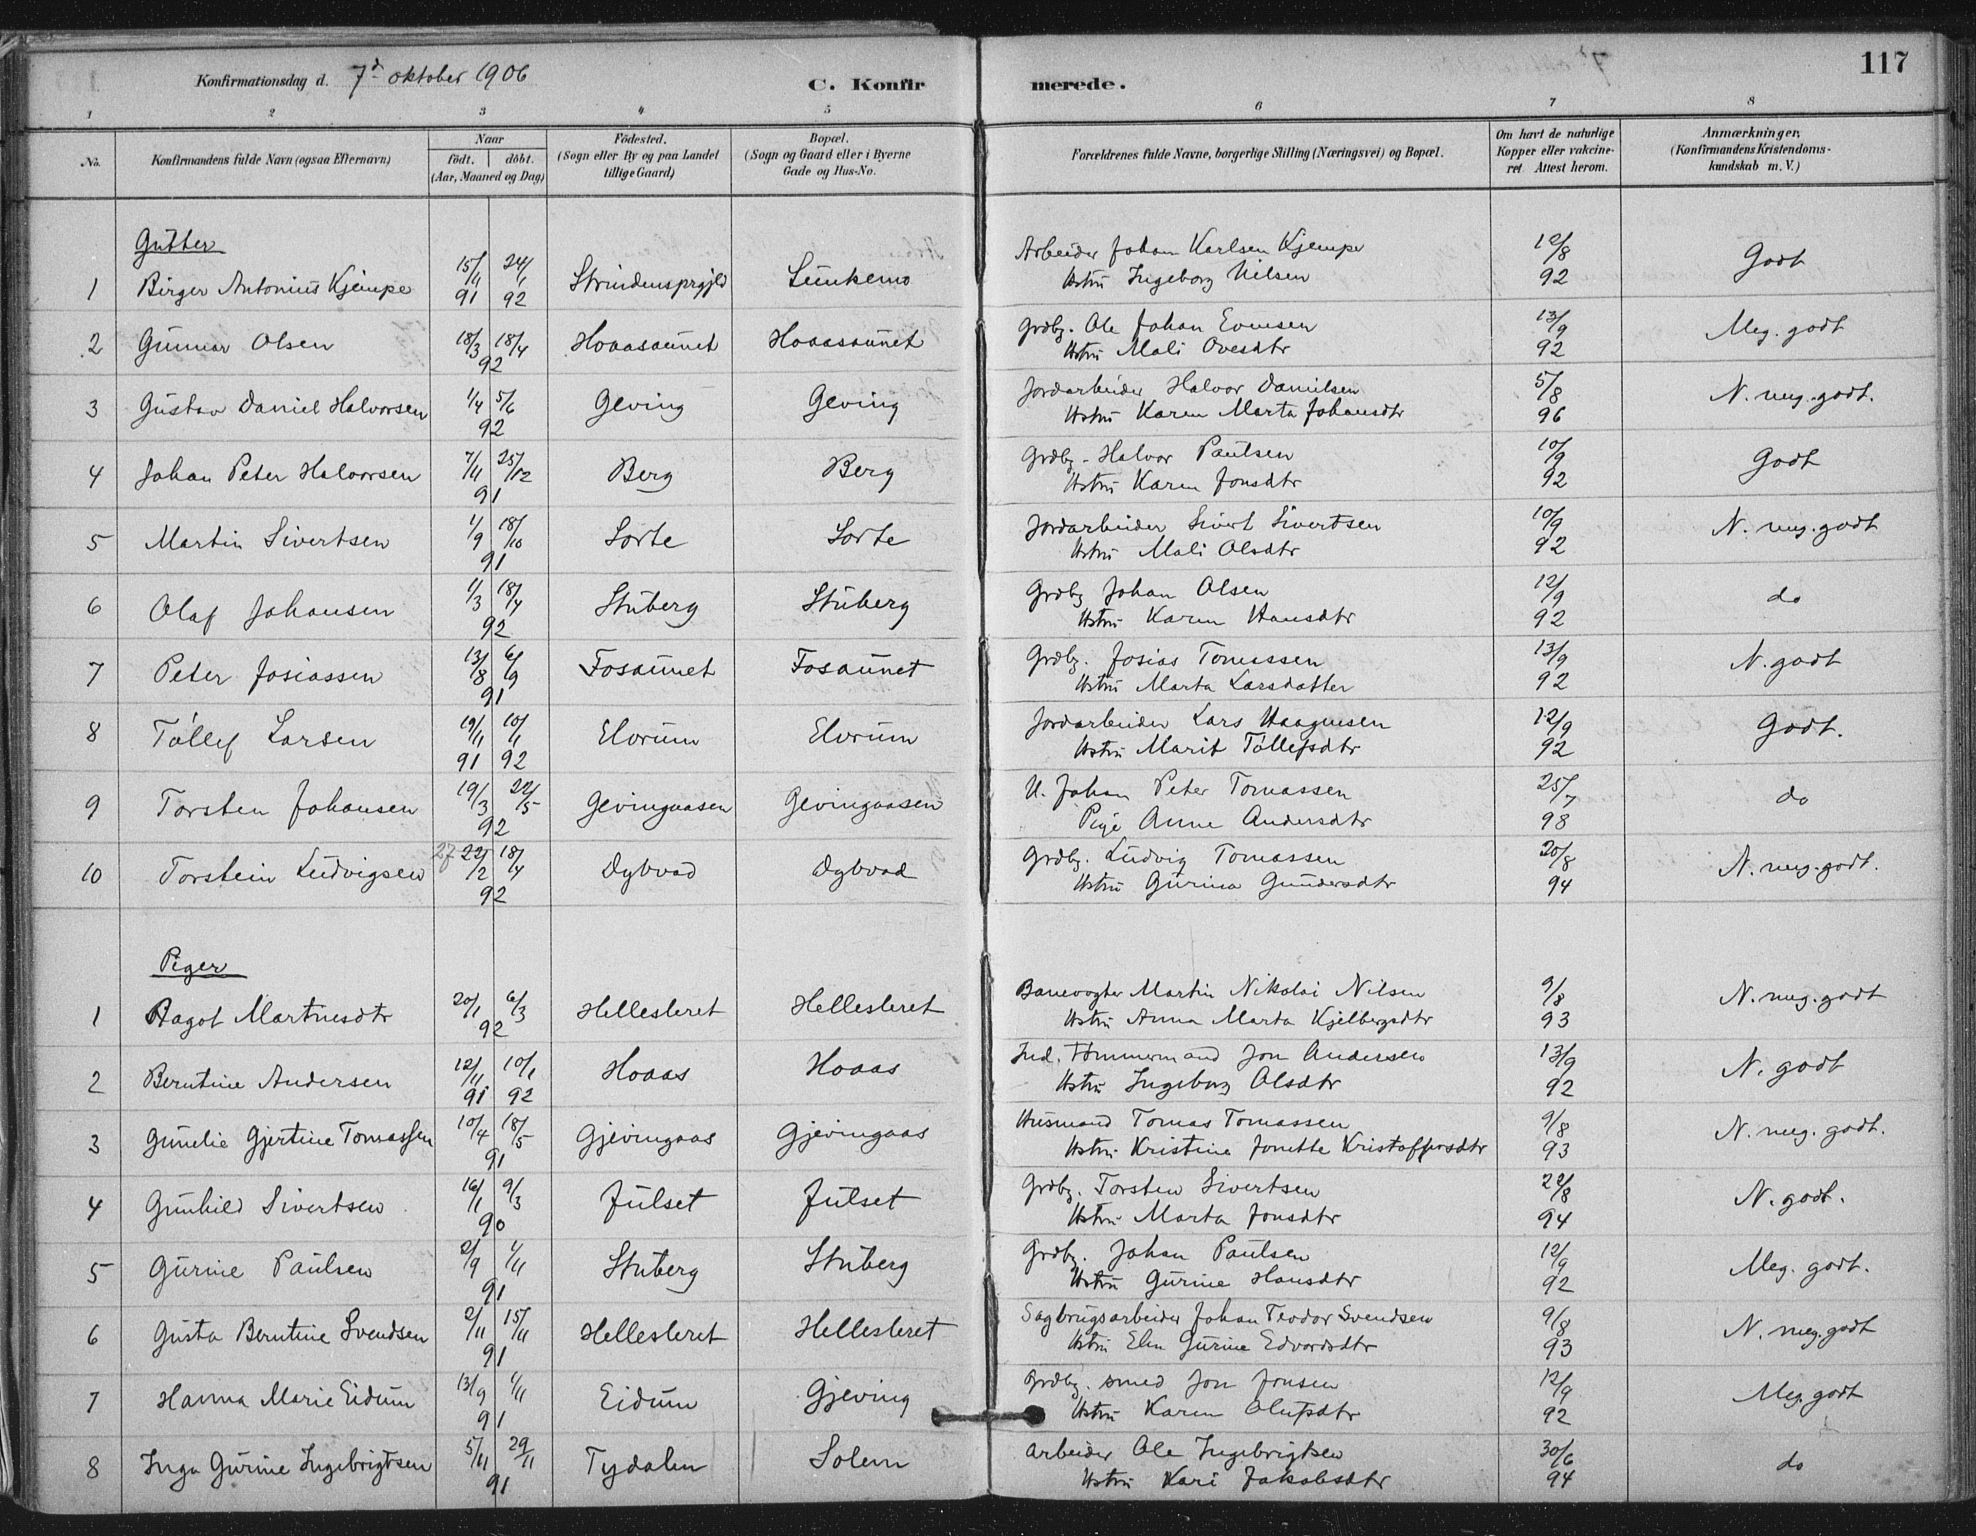 117
Konfirmationsdag d. 7d oktober 1906
C. Konfirmerede.
1 2 3 4 5 6 7 8
No.
Konfirmandens fulde Navn (ogsaa Efternavn)
Naar
födt. döbt.
(Aar, Maaned og Dag)
Födested.
(Sogn eller By og paa Landet
tillige Gaard)
Bopæl.
(Sogn og Gaard eller i Byerne
Gade og Hus-No.
Forældrenes fulde Navne, borgerlige Stilling (Næringsvei) og Bopæl.
Om havt de naturlige
Kopper eller vakcine-
ret. Attest herom.
Anmærkninger,
(Konfirmandens Kristendoms-
kundskab m. V.)
Gutter
1 Birger Antonius Kjempe 15/11 91 24/1 92 Strindensprgjld Lunkemo Arbeider Johan Karlsen Kjempe 12/8 92 Godt
Hstru Ingeborg Nilsen
2 Gunnar Olsen 18/3 18/4 92 Hoaasaunet Hoaasaunet Grdbg. Ole Johan Evensen 13/9 92 Meg. godt
Hstru Mali Ovesdtr
3 Gustav Daniel Halvorsen 1/4 5/6 92 Geving Geving Jordarbeider Halvor Danielsen 5/8 96 N. meg. godt.
Hstru Karen Marta Johansdtr
4 Johan Peter Halvorsen 7/11 25/12 91 Berg Berg Grdbg. Halvor Paulsen 10/9 92 Godt
Hstru Karen Jonsdtr
5 Martin Sivertsen 1/9 18/10 91 Sorte Sorte Jordarbeider Sivert Sivertsen 10/9 92 N. meg. godt
Hstru Mali Olsdtr
6 Olaf Johansen 1/3 18/4 92 Stuberg Stuberg Grdbg Johan Olsen 12/9 92 do
Hstru Karen Hansdtr
7 Peter Josiassen 13/8 6/9 91 Fosaunet Fosaunet Grdbg. Josias Tomassen 13/9 92 N. godt
Hstru Marta Larsdatter
8 Tøllef Larsen 19/11 91 10/1 92 Elvrum Elvrum Jordarbeider Lars Haagensen 12/9 92 Godt.
Hstru Marit Tøllefsdtr
9 Torsten Johansen 19/3 22/5 92 Gevingaasen Gevingaasen U. Johan Peter Tomassen 25/7 98 do
Pige Anne Andersdtr
10 Torstein Ludvigsen 27 22/2 18/4 92 Dybvad Dybvad Grdbg. Ludvig Tomassen 20/8 94 N. meg. godt.
Hstru Gurina Gundersdtr
Piger
1 Ragot Martinesdtr 20/1 6/3 92 Hellesleret Hellesleret Banevogter Martin Nikolai Nilsen 9/8 93 N. meg. godt
Hstru Anna Marta Kjelbergsdtr
2 Berntine Andersen 12/11 91 10/1 92 Hoaas Hoaas Ind. Tømmermand Jon Andersen 13/9 92 N. godt
Hstru Ingeborg Olsdtr
3 Gunelie Gjertine Tomassen 10/4 18/5 91 Gjevingaas Gjevingaas Husmand Tomas Tomassen 9/8 93 N. meg. godt.
Hstru Kristine Jonette Kristoffersdtr
4 Gunhild Sivertsen 16/1 9/3 90 Julset Julset Grdbg. Torsten Sivertsen 22/8 94 N. godt.
Hstru Marta Jonsdtr
5 Gurine Paulsen 2/9 1/11 91 Stuberg Stuberg Grdbg. Johan Paulsen 12/9 92 Meg. godt.
Hstru Gurine Hansdtr
6 Gusta Berntine Svendsen 2/11 15/11 91 Hellesleret Hellesleret Sagbrugsarbeider Johan Teodor Svendsen 9/8 93 N. meg. godt
Hstru Elen Gurine Edvardsdtr
7 Hanna Marie Eidum 13/9 1/11 91 Eidum Gjeving Grdbg. smed Jon Jonsen 12/9 92 Meg. godt
Hstru Karen Olufsdtr
8 Inga Gurine Ingebrigtsen 5/11 29/11 91 Tydalen Solem Arbeider Ole Ingebrigtsen 30/6 94 do
Hstru Kari Jakobsdtr